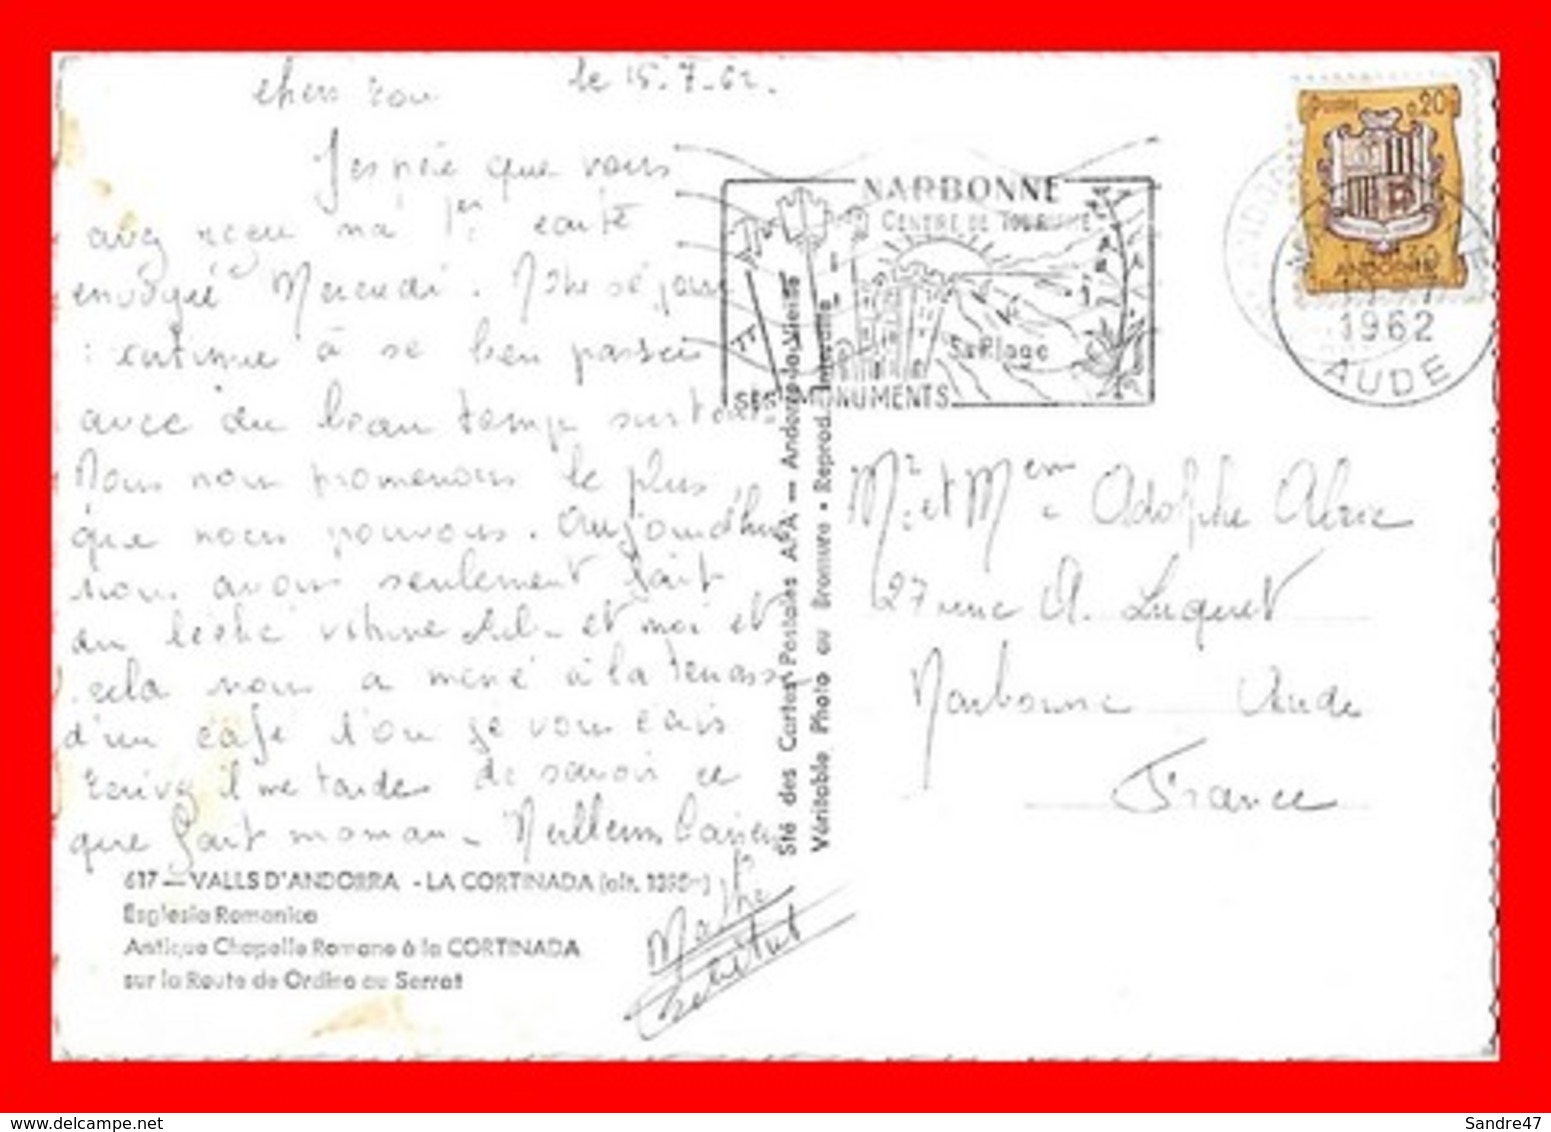 le 15.7.62.
chers tous
J'espère que vous
avez reçu ma 1ère carte
envoyée Mercredi. Notre séjour
continue à se bien passer
avec du beau temps surtout.
Nous nous promenons le plus
que nous pouvons. Aujourd'hui
nous avons seulement fait
du lèche vitrine et moi et
cela nous a mené à la terrasse
d'un café d'ou je vous écris
Ecrivez il me tarde de savoir ce
que fait maman. Meilleurs baisers
617 — VALLS D'ANDORRA - LA CORTINADA (alt. )
Esglesia Romanica
Antique Chapelle Romane à la CORTINADA
sur la Route de Ordino au Serrat
Sté des Cartes Postales APA — Andorre-la-Vieille
Véritable Photo au Bromure • Reprod. Interdite
NARBONNE
CENTRE DE TOURISME
Sa Plage
SES MONUMENTS
Postes 0.20
ANDORRE
1962
AUDE
Mr et Mme Adolphe
27 rue A. Luquet
Narbonne Aude
France
Sandre47
www.delcampe.net